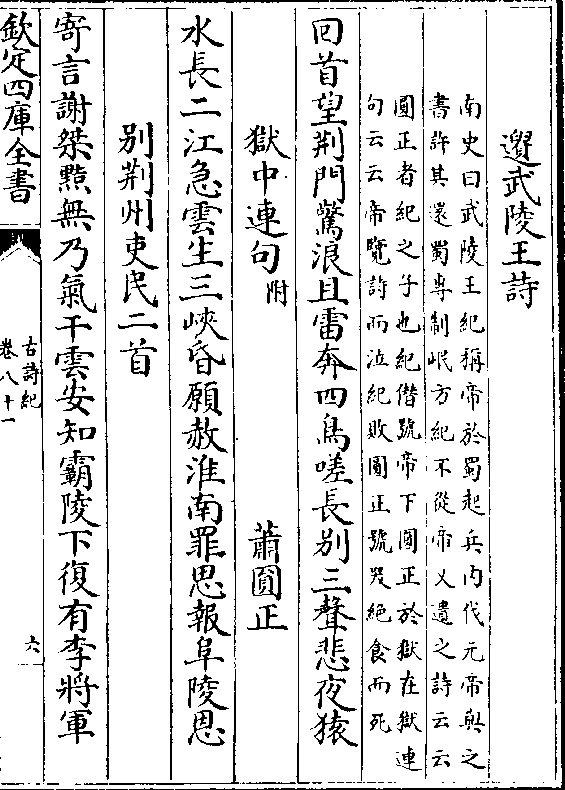 遺武陵王詩
南史曰武陵王紀稱帝於蜀起兵内伐元帝與之
書許其還蜀專制岷方紀不從帝又遺之詩云云
圓正者紀之子也紀僣號帝下圓正於獄在獄連
句云云帝覽詩而泣紀敗圓正號哭絶食而死
回首望荆門驚浪且雷奔四鳥嗟長别三聲悲夜猿
獄中連句附 蕭圓正
水長二江急雲生三峽昏願赦淮南罪思報阜陵恩
别荆州吏民二首
寄言謝桀黠無乃氣干雲安知霸陵下復有李將軍
欽定四庫全書
古詩紀
卷八十一
六